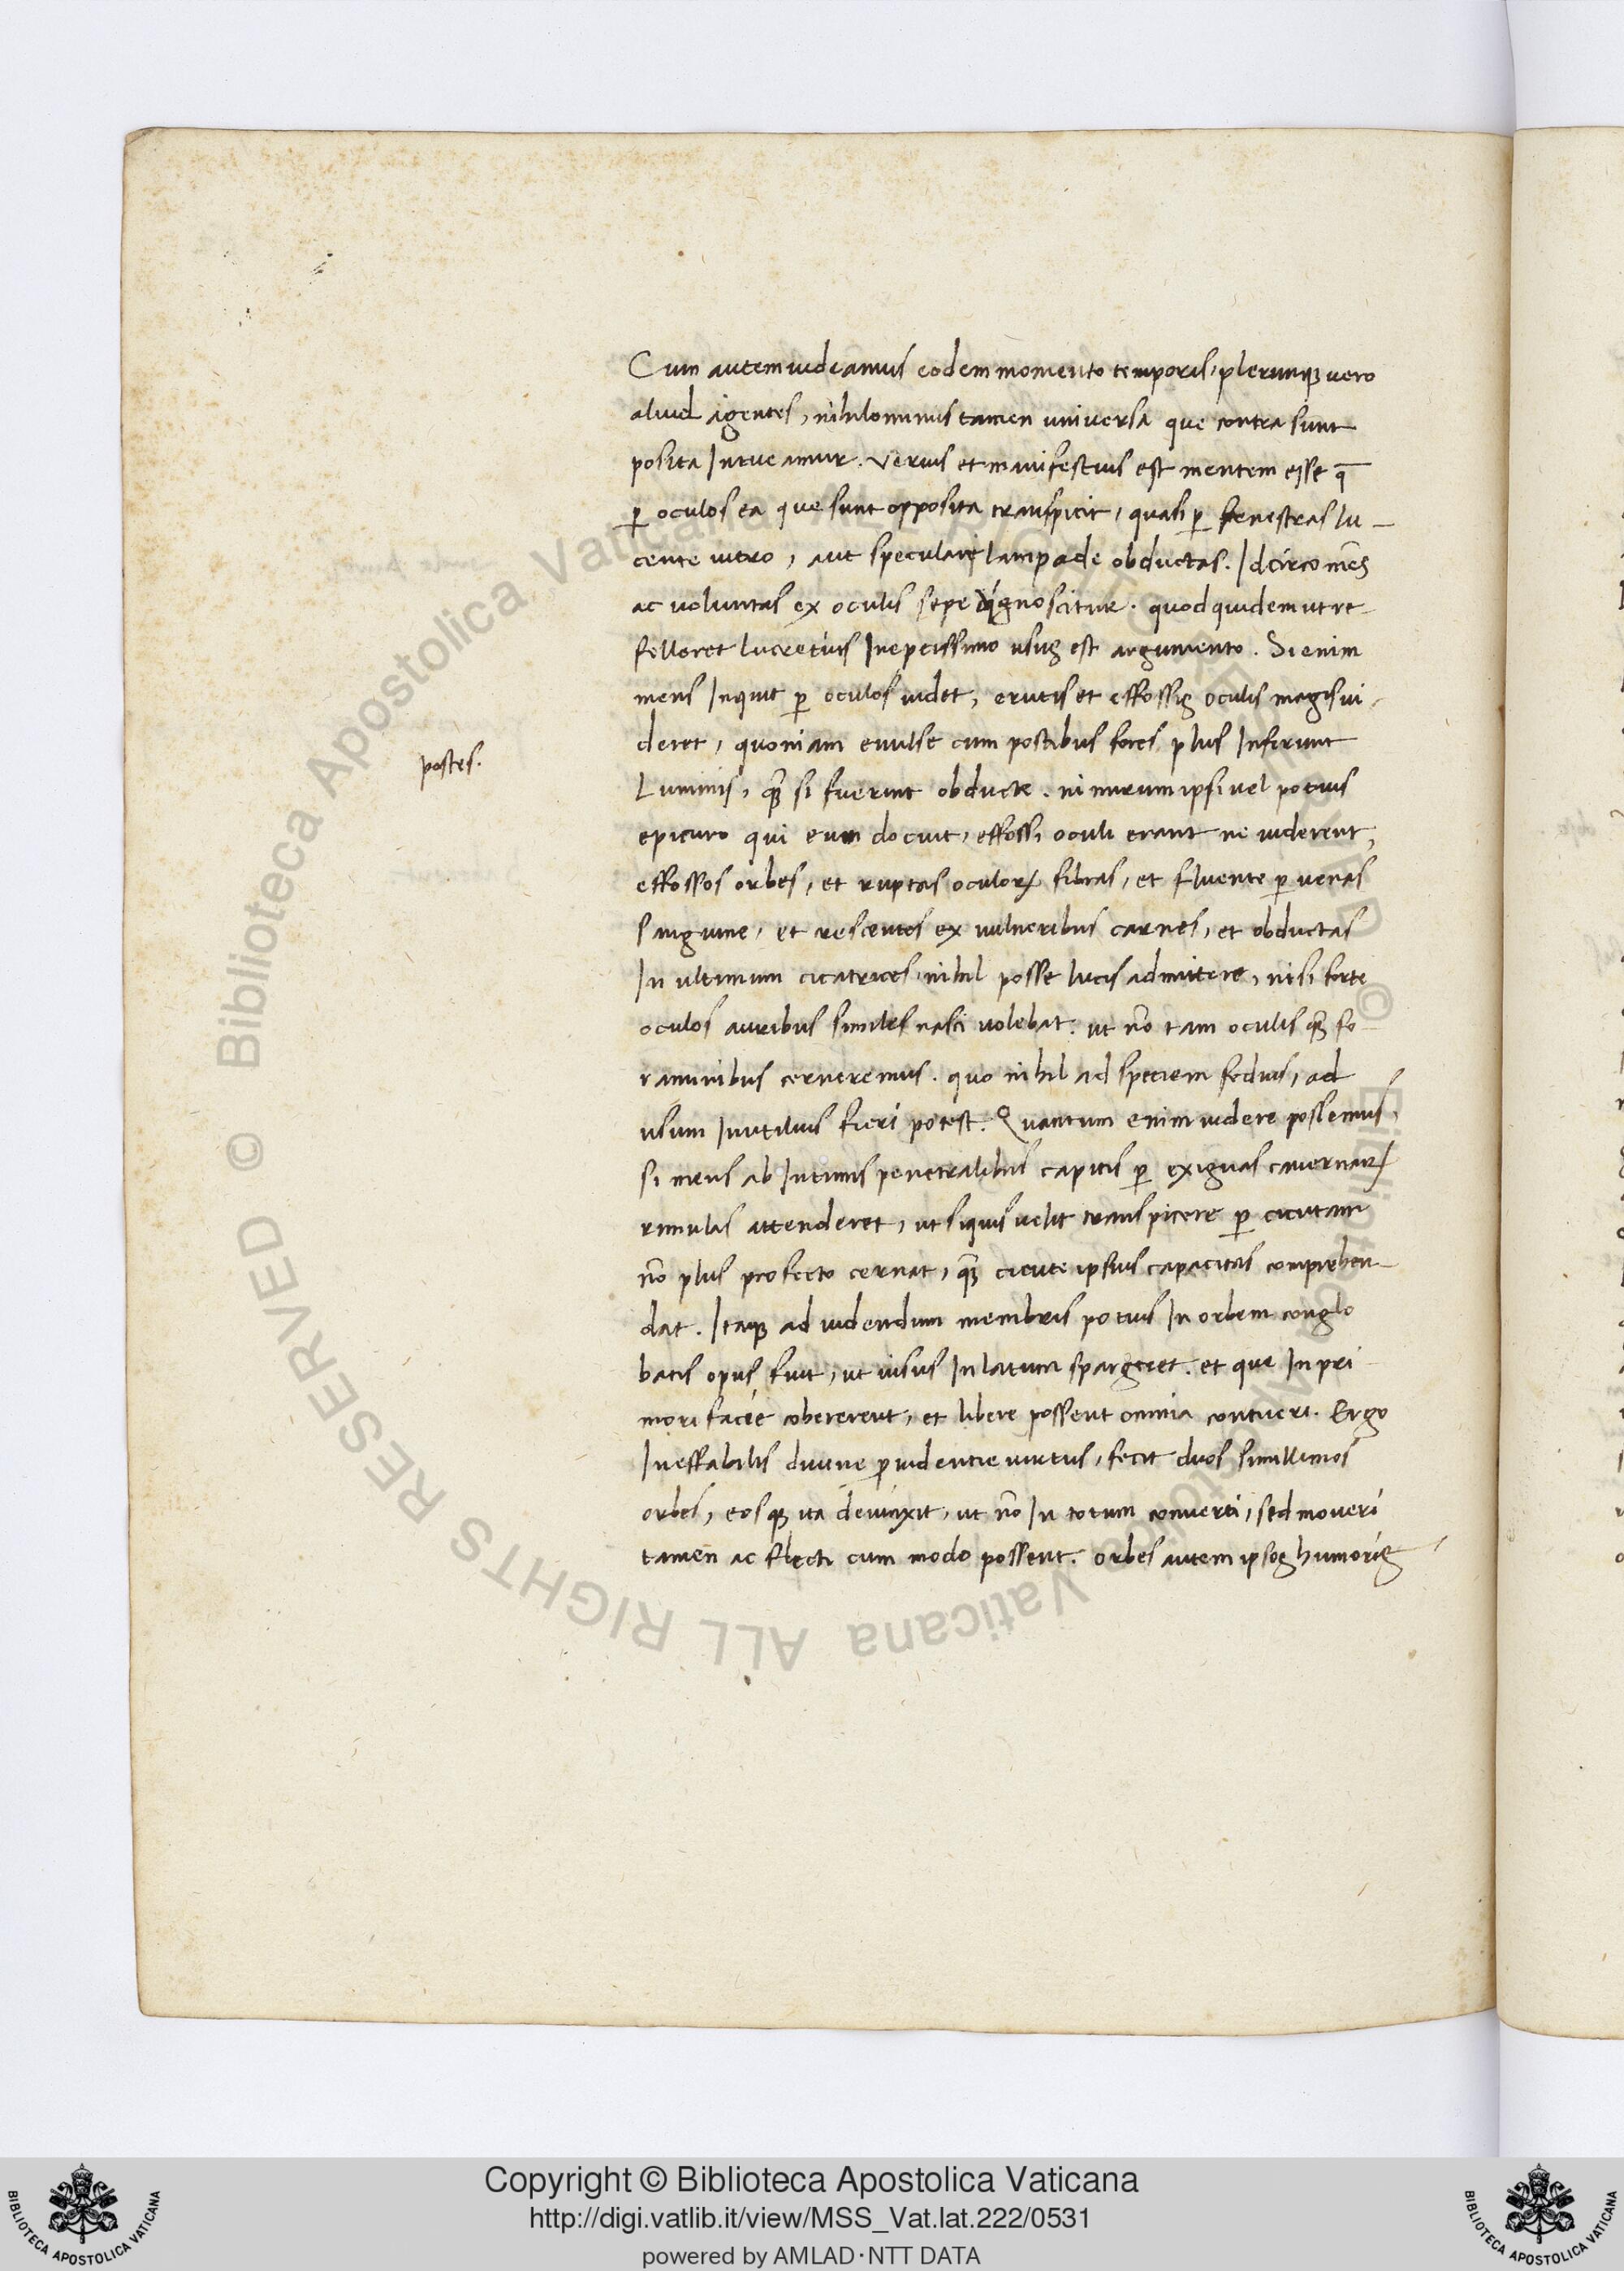 Cum autem uideamus eodem momento temporis, plerunqꝫ uero
aliud agentes, nihilominus tamen uniuersa que contra sunt
posita Intueamur. Verius et manifestius est mentem esse q̄
ꝑ oculos ea que sunt opposita transpicit, quasi ꝑ fenestras lu-
cente uitro, aut speculari lampade obductas. Idcirco mēs
ac uoluntas ex oculis sepe dignoscitur. quod quidem ut re-
felleret lucretius Ineptissimo usus est argumento. Si enim
mens Inquit ꝑ oculos uidet, erutis et effossis oculis magis ui-
deret, quoniam euulse cum postibus fores plus Inferunt
postes.
Luminis, qꝫ̄ si fuerint obducte. nimirum ipsi uel potius
epicuro qui eum docuit, effossi oculi erant ne uiderent,
effossos orbes, et ruptas oculoꝝ fibras, et fluente ꝑ uenas
Sanguine, et crescentes ex uulneribus carnes, et obductas
In ultimum cicatrices, nihil posse lucis admittere, nisi forte
oculos auribus similes nasci uolebat. ut nō tam oculis qꝫ̄ fo-
raminibus cerneremus. quo nihil ad speciem fedius, ad
usum Inutilius fieri potest. Quantum enim uidere possemus,
si mens ab Intimis penetralibus capitis ꝑ exiguas cauernaꝝ
rimulas attenderet, ut siquis uelit transpicere ꝑ cicutam
nō plus profecto cernat, qꝫ̄ cicute ipsius capacitas comprehen-
dat. Itaqꝫ ad uidendum membris potius In orbem conglo
batis opus fuit, ut uisus In latum spargeret. et que In pri-
mori facie cohererent, et libere possent omnia contueri. Ergo
Ineffabilis diuine ꝓuidentie uirtus, fecit duos simillimos
orbes, eosqꝫ ita deuinxit, ut nō In totum conuerti, sed moueri
tamen ac flecti cum modo possent. orbes autem ipsos humoris
© Biblioteca Apostolica Vaticana ALL RIGHTS RESERVED
Copyright © Biblioteca Apostolica Vaticana
http://digi.vatlib.it/view/MSS_Vat.lat.222/0531
powered by AMLAD·NTT DATA
BIBLIOTECA APOSTOLICA VATICANA
BIBLIOTECA APOSTOLICA VATICANA